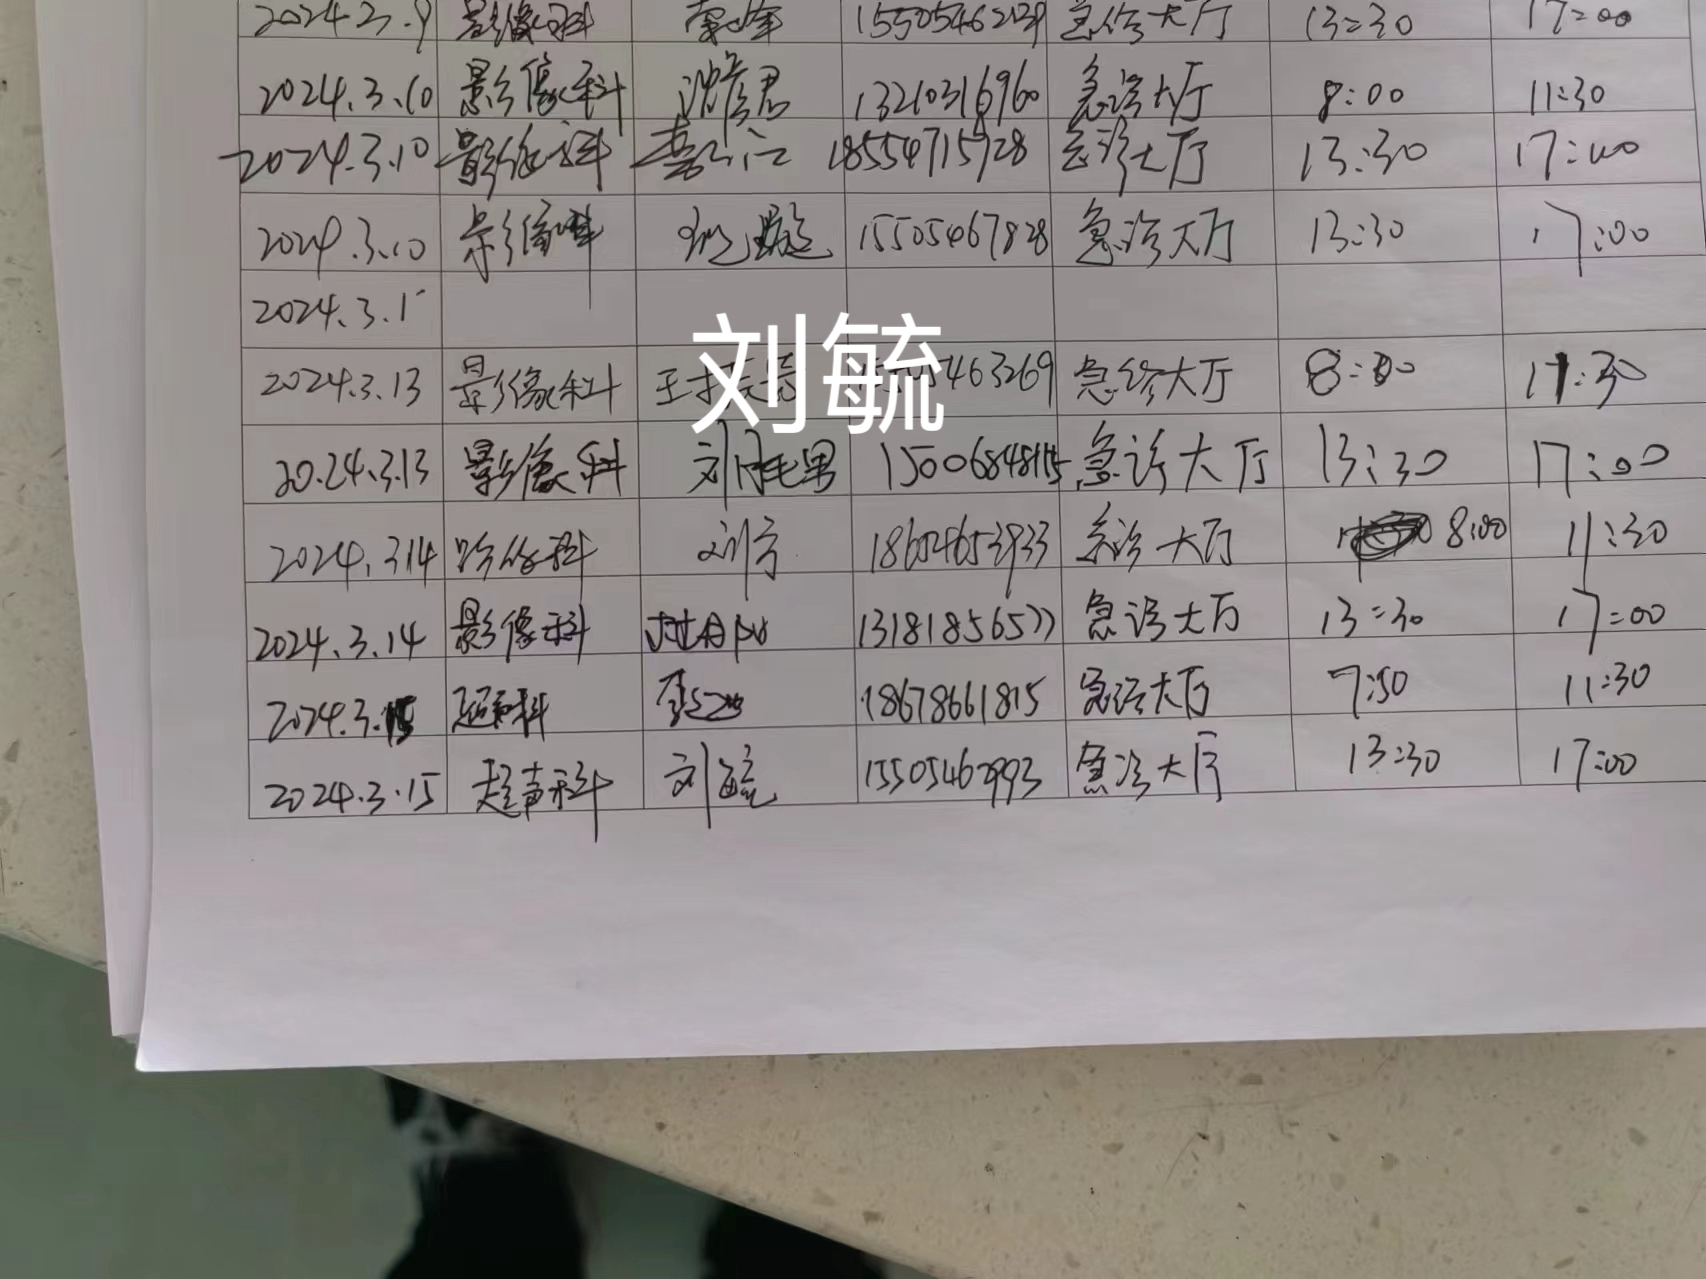 2024.3.9 影像科 15505462039 急诊大厅 13:30 17:00
2024.3.10 影像科 沈彦君 13210316960 急诊大厅 8:00 11:30
2024.3.10 影像科 18554715928 急诊大厅 13:30 17:00
2024.3.10 影像科 15505467828 急诊大厅 13:30 17:00
2024.3.1
刘毓
2024.3.13 影像科 463269 急诊大厅 8:00 11:30
2024.3.13 影像科 15006848115 急诊大厅 13:30 17:00
2024.3.14 18654653933 急诊大厅 8:00 11:30
2024.3.14 影像科 13181856577 急诊大厅 13:30 17:00
2024.3.15 18678661815 急诊大厅 7:50 11:30
2024.3.15 超声科 刘毓 15505462993 急诊大厅 13:30 17:00